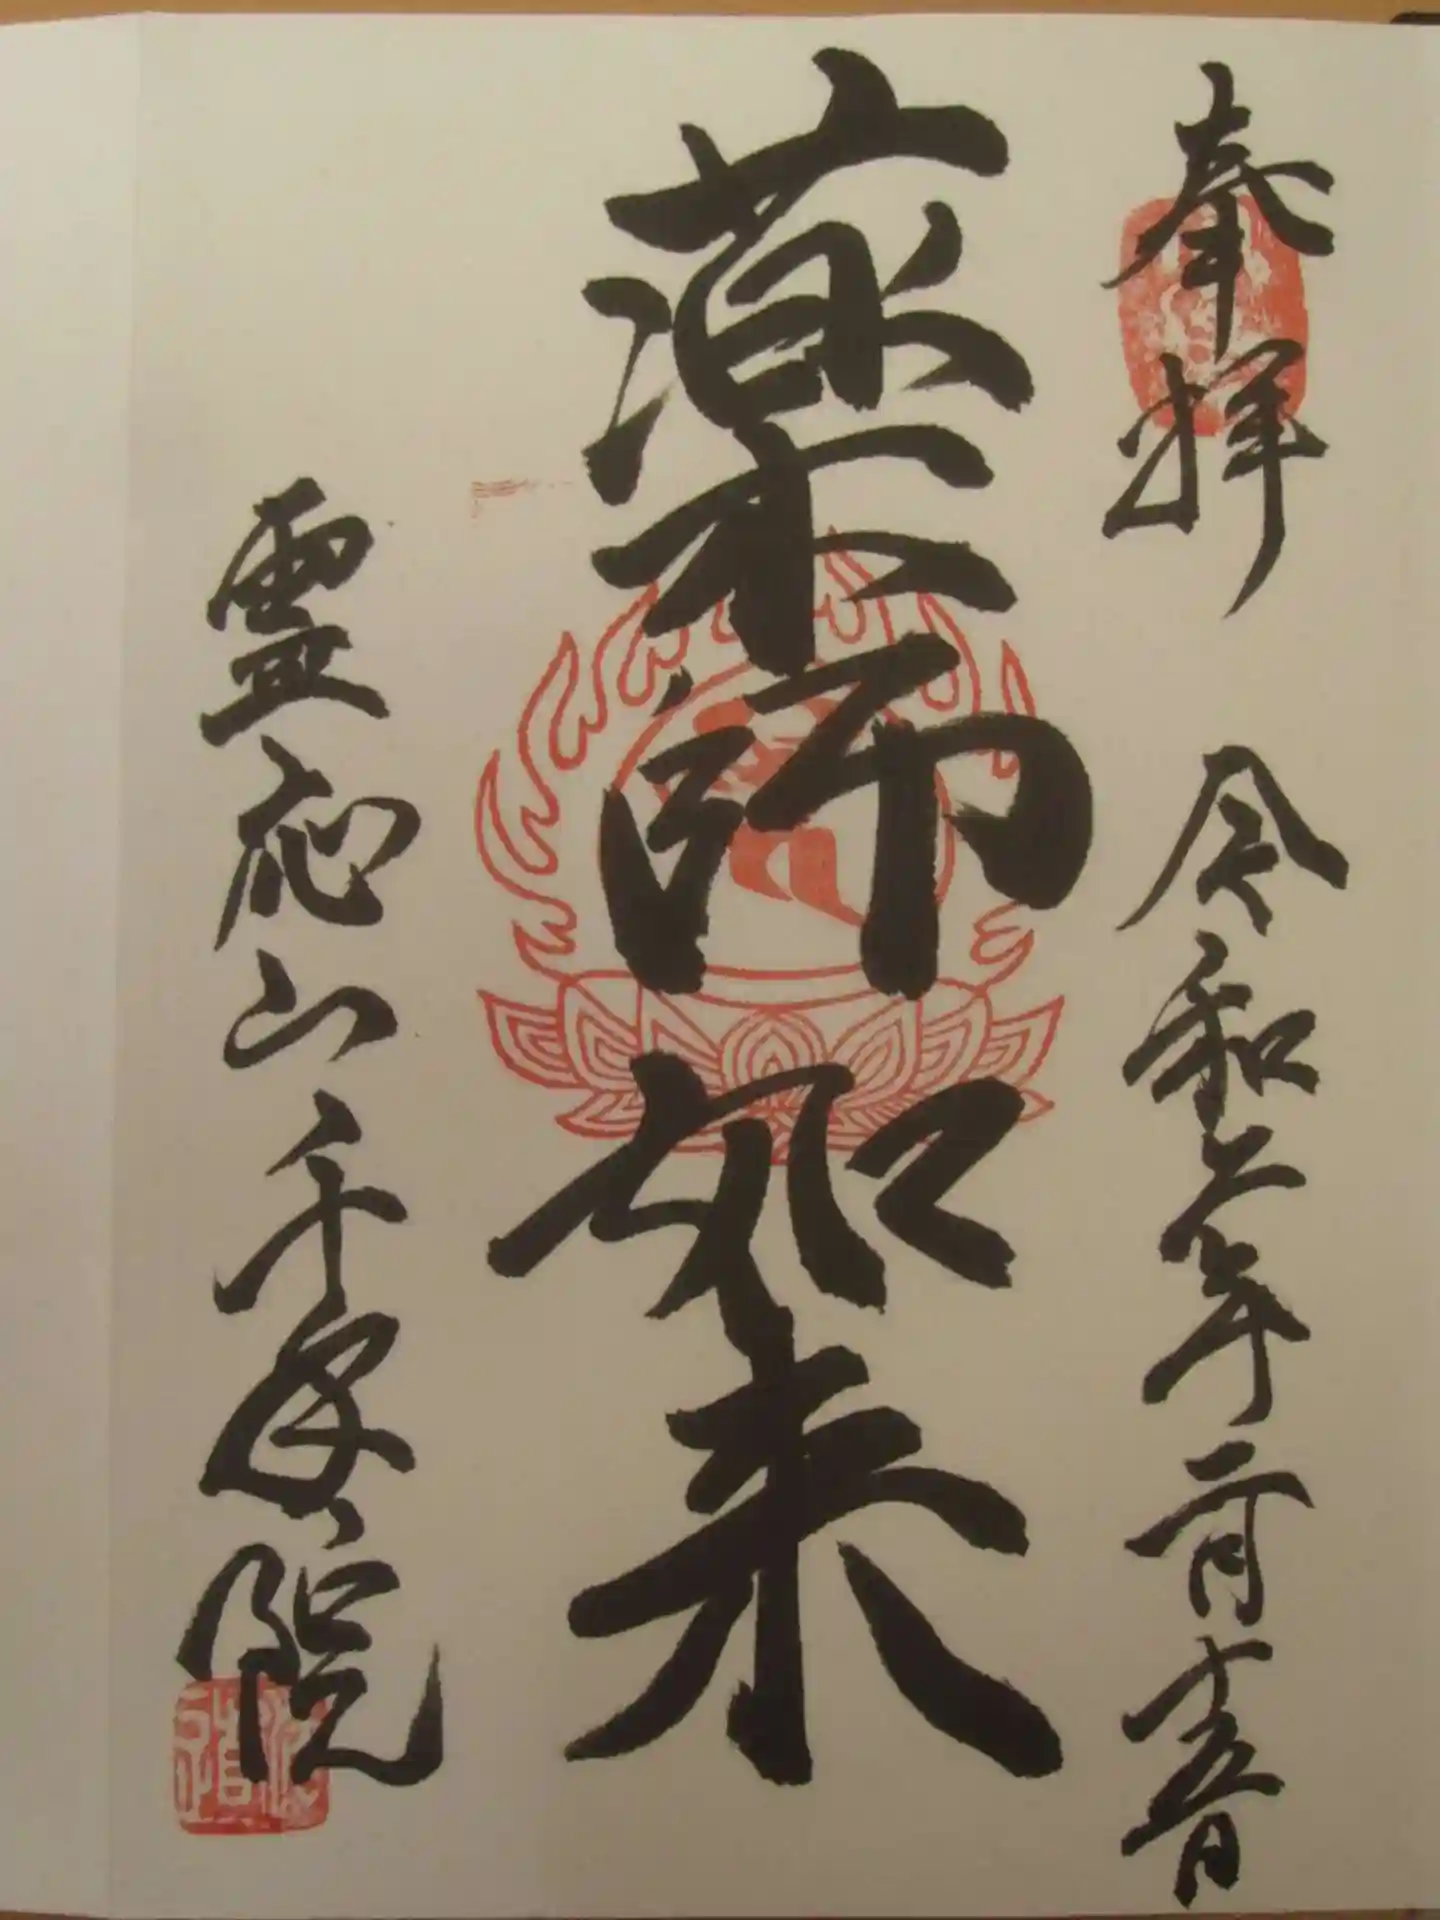 奉拝 令和六年二月十五日
薬師如来
霊応山千院